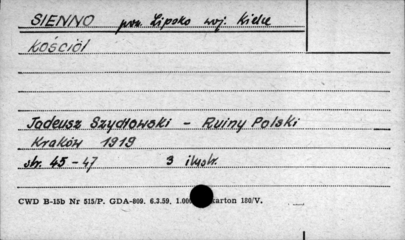 SIENNO pow. Lipsko woj. Kielce
Kościół
Tadeusz Szydłowski - Ruiny Polski
Kraków 1919
str. 45-47 3 ilustr.
CWD B-15b Nr 515/P. GDA-809. 6.3.59. 1.00 karton 180/V.